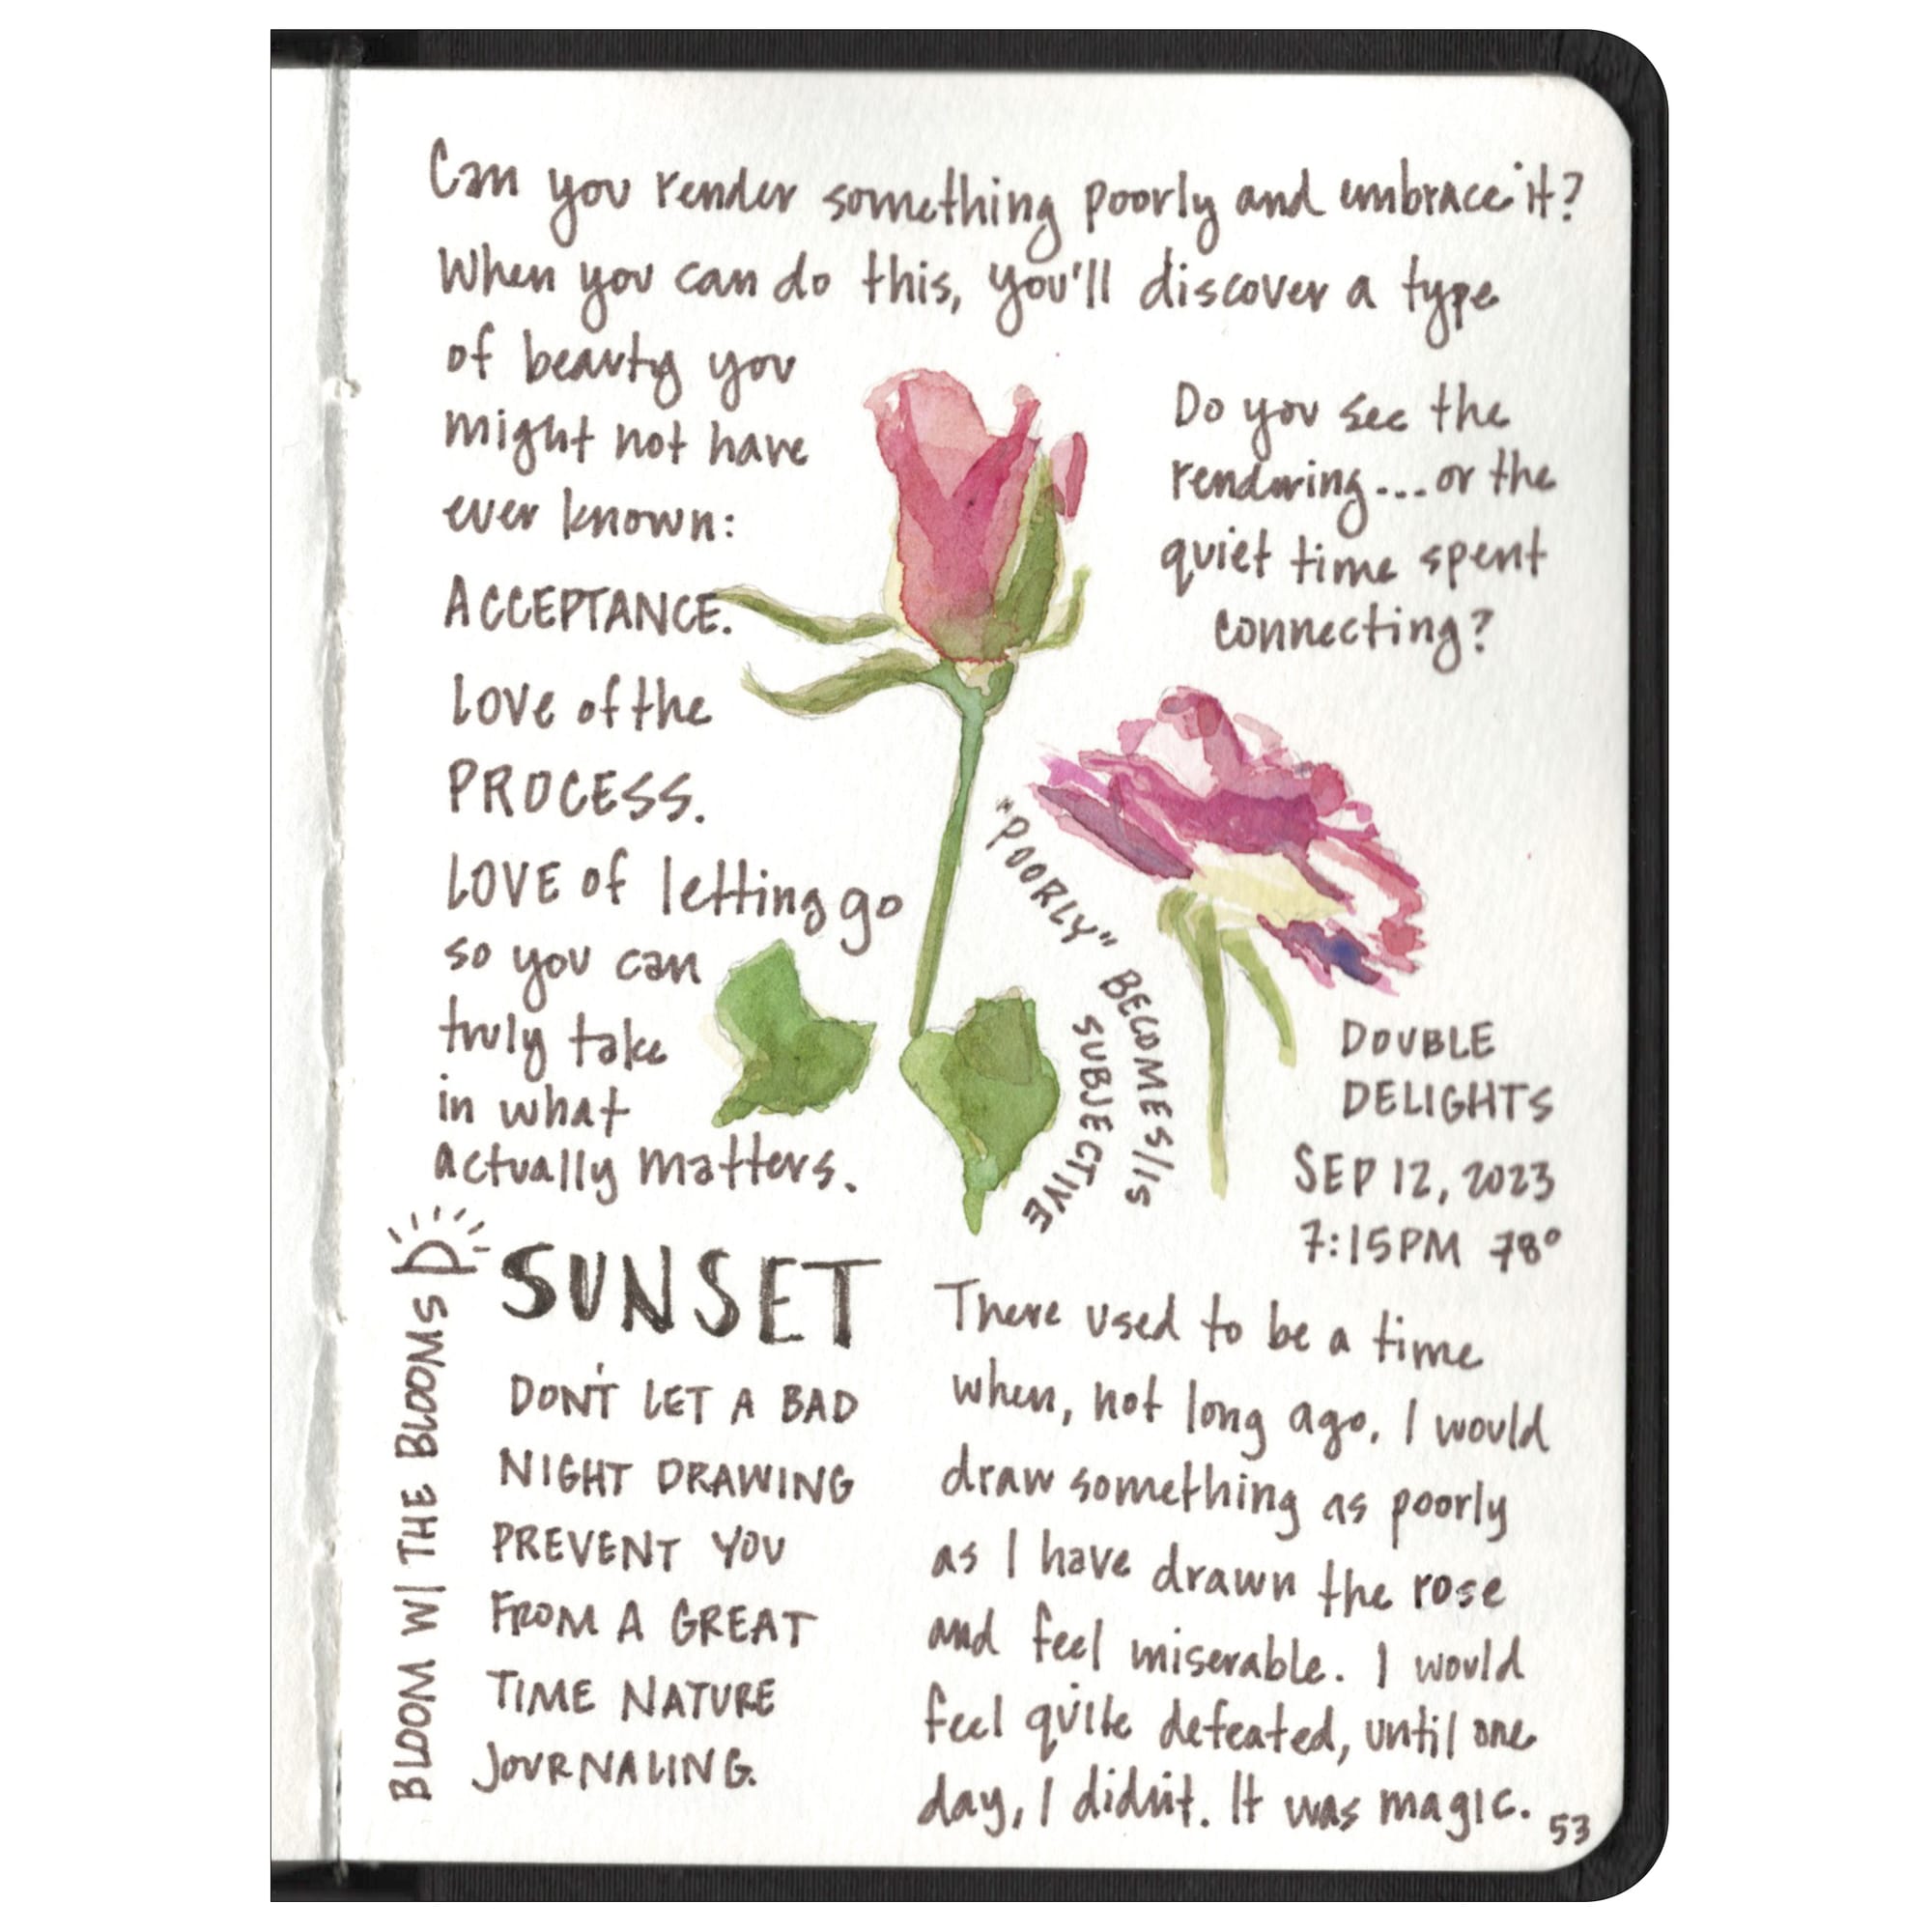 Can you render something poorly and embrace it?
When you can do this, you'll discover a type
of beauty you
might not have
ever known:
ACCEPTANCE.
LOVE of the
PROCESS.
LOVE of letting go
so you can
truly take
in what
actually matters.
Do you see the
rendering...or the
quiet time spent
connecting?
"POORLY" BECOMES/IS
SUBJECTIVE
DOUBLE
DELIGHTS
SEP 12, 2023
7:15PM 78°
BLOOM W/ THE BLOOMS
SUNSET
DON'T LET A BAD
NIGHT DRAWING
PREVENT YOU
FROM A GREAT
TIME NATURE
JOURNALING.
There used to be a time
when, not long ago, I would
draw something as poorly
as I have drawn the rose
and feel miserable. I would
feel quite defeated, until one
day, I didn't. It was magic.
53